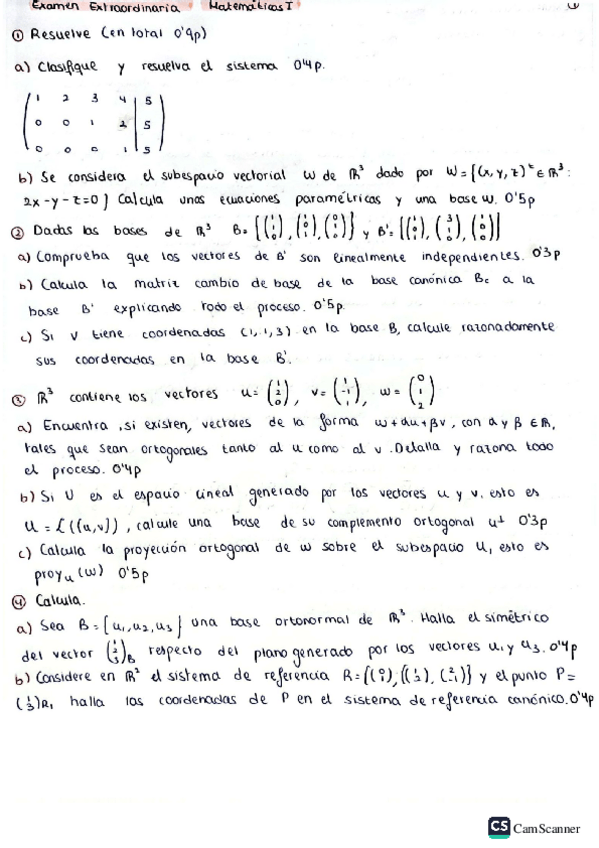 Examen Extraordinaria Matemáticas I
① Resuelve (en total 0'9p)
a) Clasifique y resuelva el sistema 0'4p.
1 2 3 4 | 5
0 0 1 2 | 5
0 0 0 1 | 5
b) Se considera el subespacio vectorial W de R³ dado por W={(x,y,z)ᵗ ∈ R³:
2x-y-z=0} Calcula unas ecuaciones paramétricas y una base W. 0'5p
② Dadas las bases de R³ B= y B'=
a) Comprueba que los vectores de B' son linealmente independientes. 0'3p
b) Calcula la matriz cambio de base de la base canónica Bc a la
base B' explicando todo el proceso. 0'5p.
c) Si v tiene coordenadas (1,1,3) en la base B, calcule razonadamente
sus coordenadas en la base B'.
③ R³ contiene los vectores u= (1 2 0), v= (1 -1 1), w= (0 1 2)
a) Encuentra, si existen, vectores de la forma w+αu+βv, con α y β ∈ R,
tales que sean ortogonales tanto al u como al v. Detalla y razona todo
el proceso. 0'4p
b) Si U es el espacio lineal generado por los vectores u y v, esto es
U = L((u,v)), calcule una base de su complemento ortogonal u⊥ 0'3p
c) Calcula la proyección ortogonal de w sobre el subespacio U, esto es
proyu (w) 0'5p
④ Calcula.
a) Sea B={u1,u2,u3} una base ortonormal de R³. Halla el simétrico
del vector B respecto del plano generado por los vectores u1 y u3. 0'4p
b) Considere en R² el sistema de referencia R={(0 1),{(1 2),(2 -1)}} y el punto P=
(1 3)R, halla las coordenadas de P en el sistema de referencia canónico. 0'4p
CS CamScanner